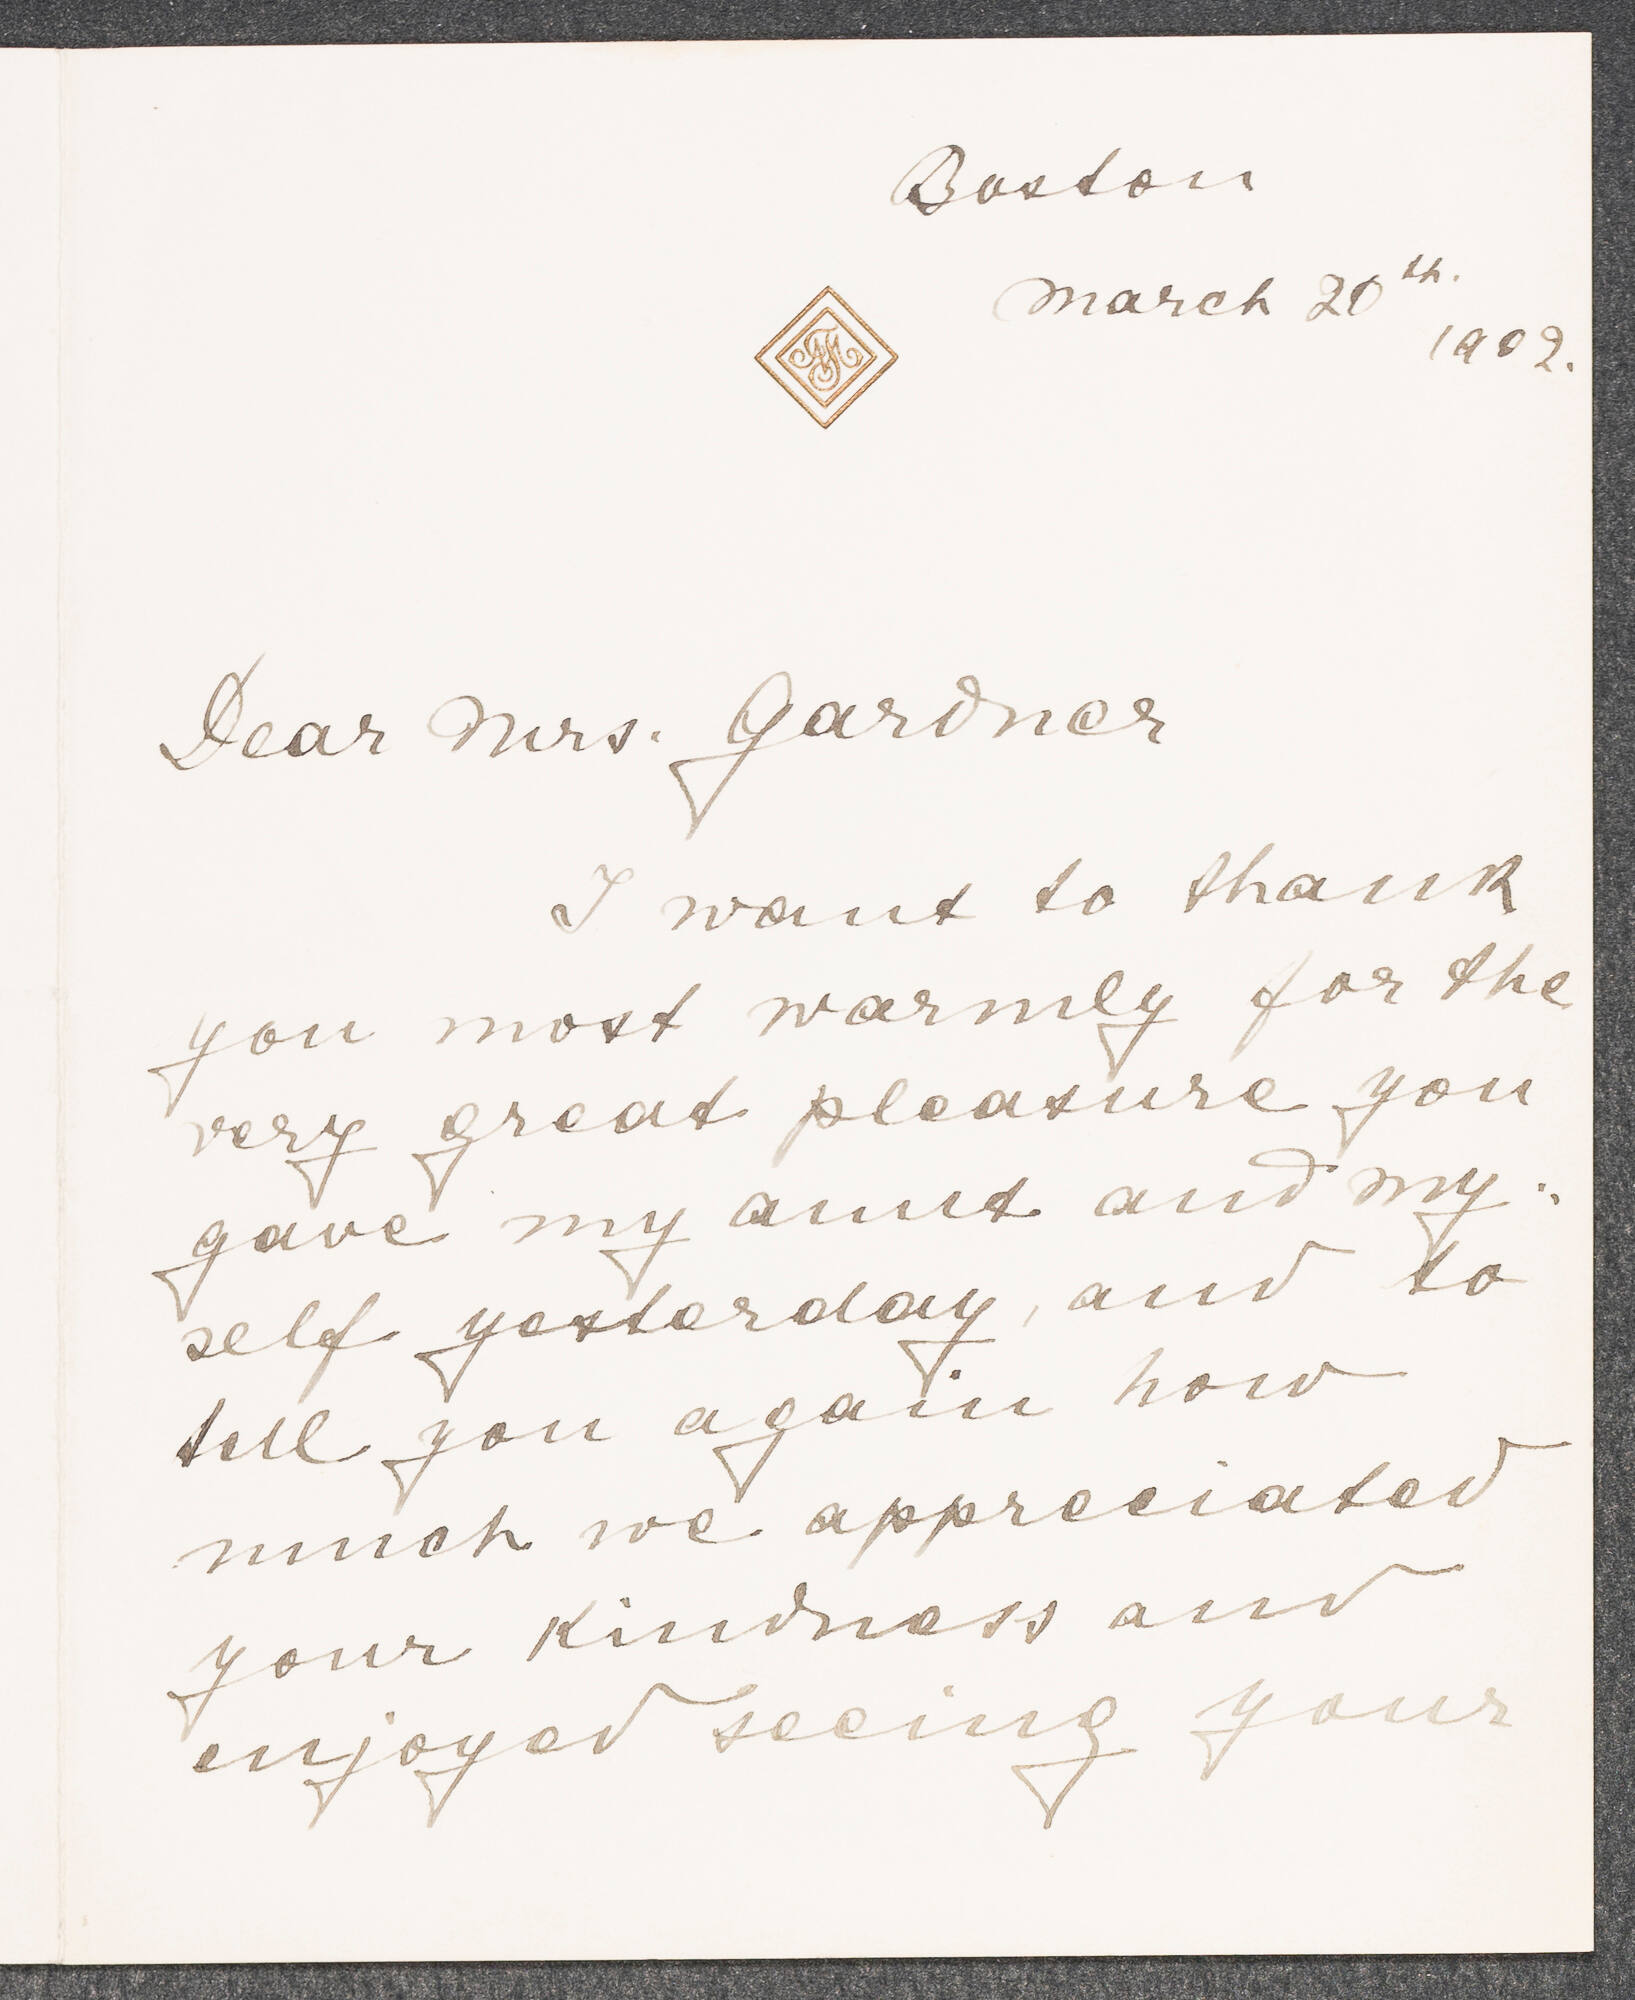 Boston
March 20th.
1902.
Dear Mrs. Gardner
I want to thank
you most warmly for the
very great pleasure you
gave my aunt and my-
self yesterday, and to
tell you again how
much we appreciated
your kindness and
enjoyed seeing your